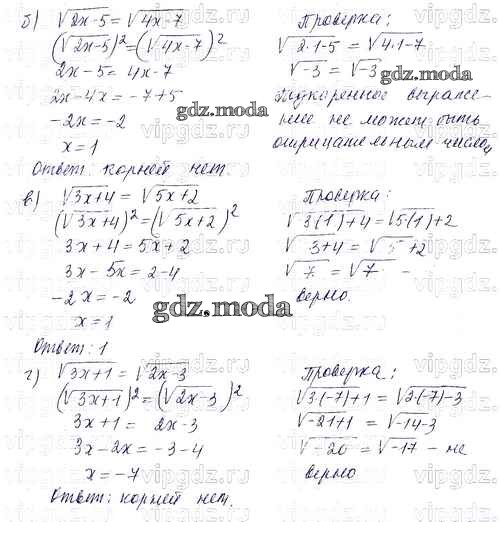 б) √2x-5 = √4x-7
(√2x-5)² = (√4x-7)²
2x-5 = 4x-7
2x-4x = -7+5
-2x = -2
x = 1
Ответ: корней нет.
Проверка:
√2·1-5 = √4·1-7
√-3 = √-3
Подкоренное выраже-
ние не может быть
отрицательным числом
gdz.moda
в) √3x+4 = √5x+2
(√3x+4)² = (√5x+2)²
3x+4 = 5x+2
3x-5x = 2-4
-2x = -2
x = 1
Ответ: 1
Проверка:
√3(1)+4 = √5(1)+2
√3+4 = √5+2
√7 = √7 -
верно.
gdz.moda
г) √3x+1 = √2x-3
(√3x+1)² = (√2x-3)²
3x+1 = 2x-3
3x-2x = -3-4
x = -7
Ответ: корней нет.
Проверка:
√3·(-7)+1 = √2·(-7)-3
√-21+1 = √-14-3
√-20 = √-17 - не
верно
vipgdz.ru